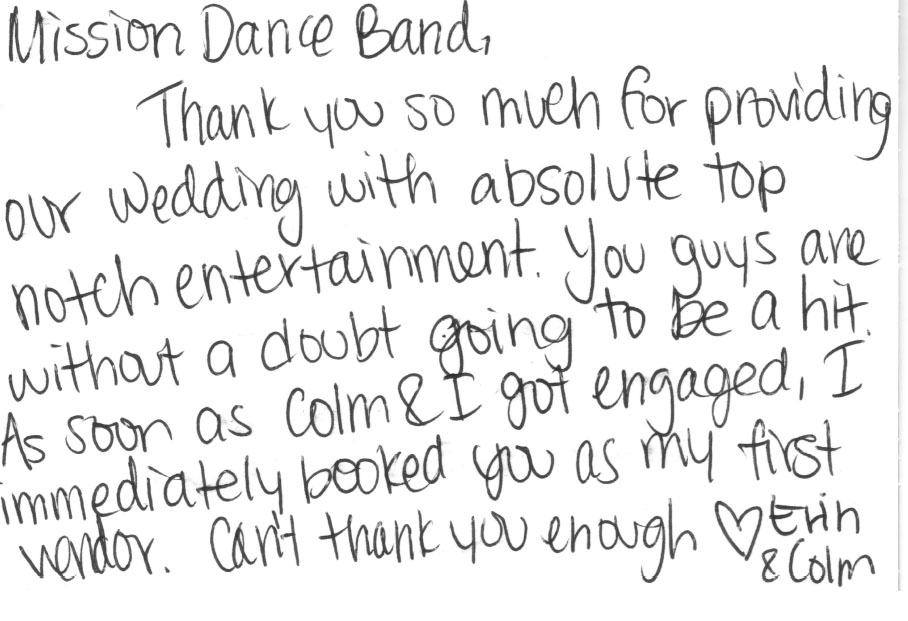 Mission Dance Band,
Thank you so much for providing
our wedding with absolute top
notch entertainment. You guys are
without a doubt going to be a hit.
As soon as Colm & I got engaged, I
immediately booked you as my first
vendor. Can't thank you enough ♡ Erin
& Colm